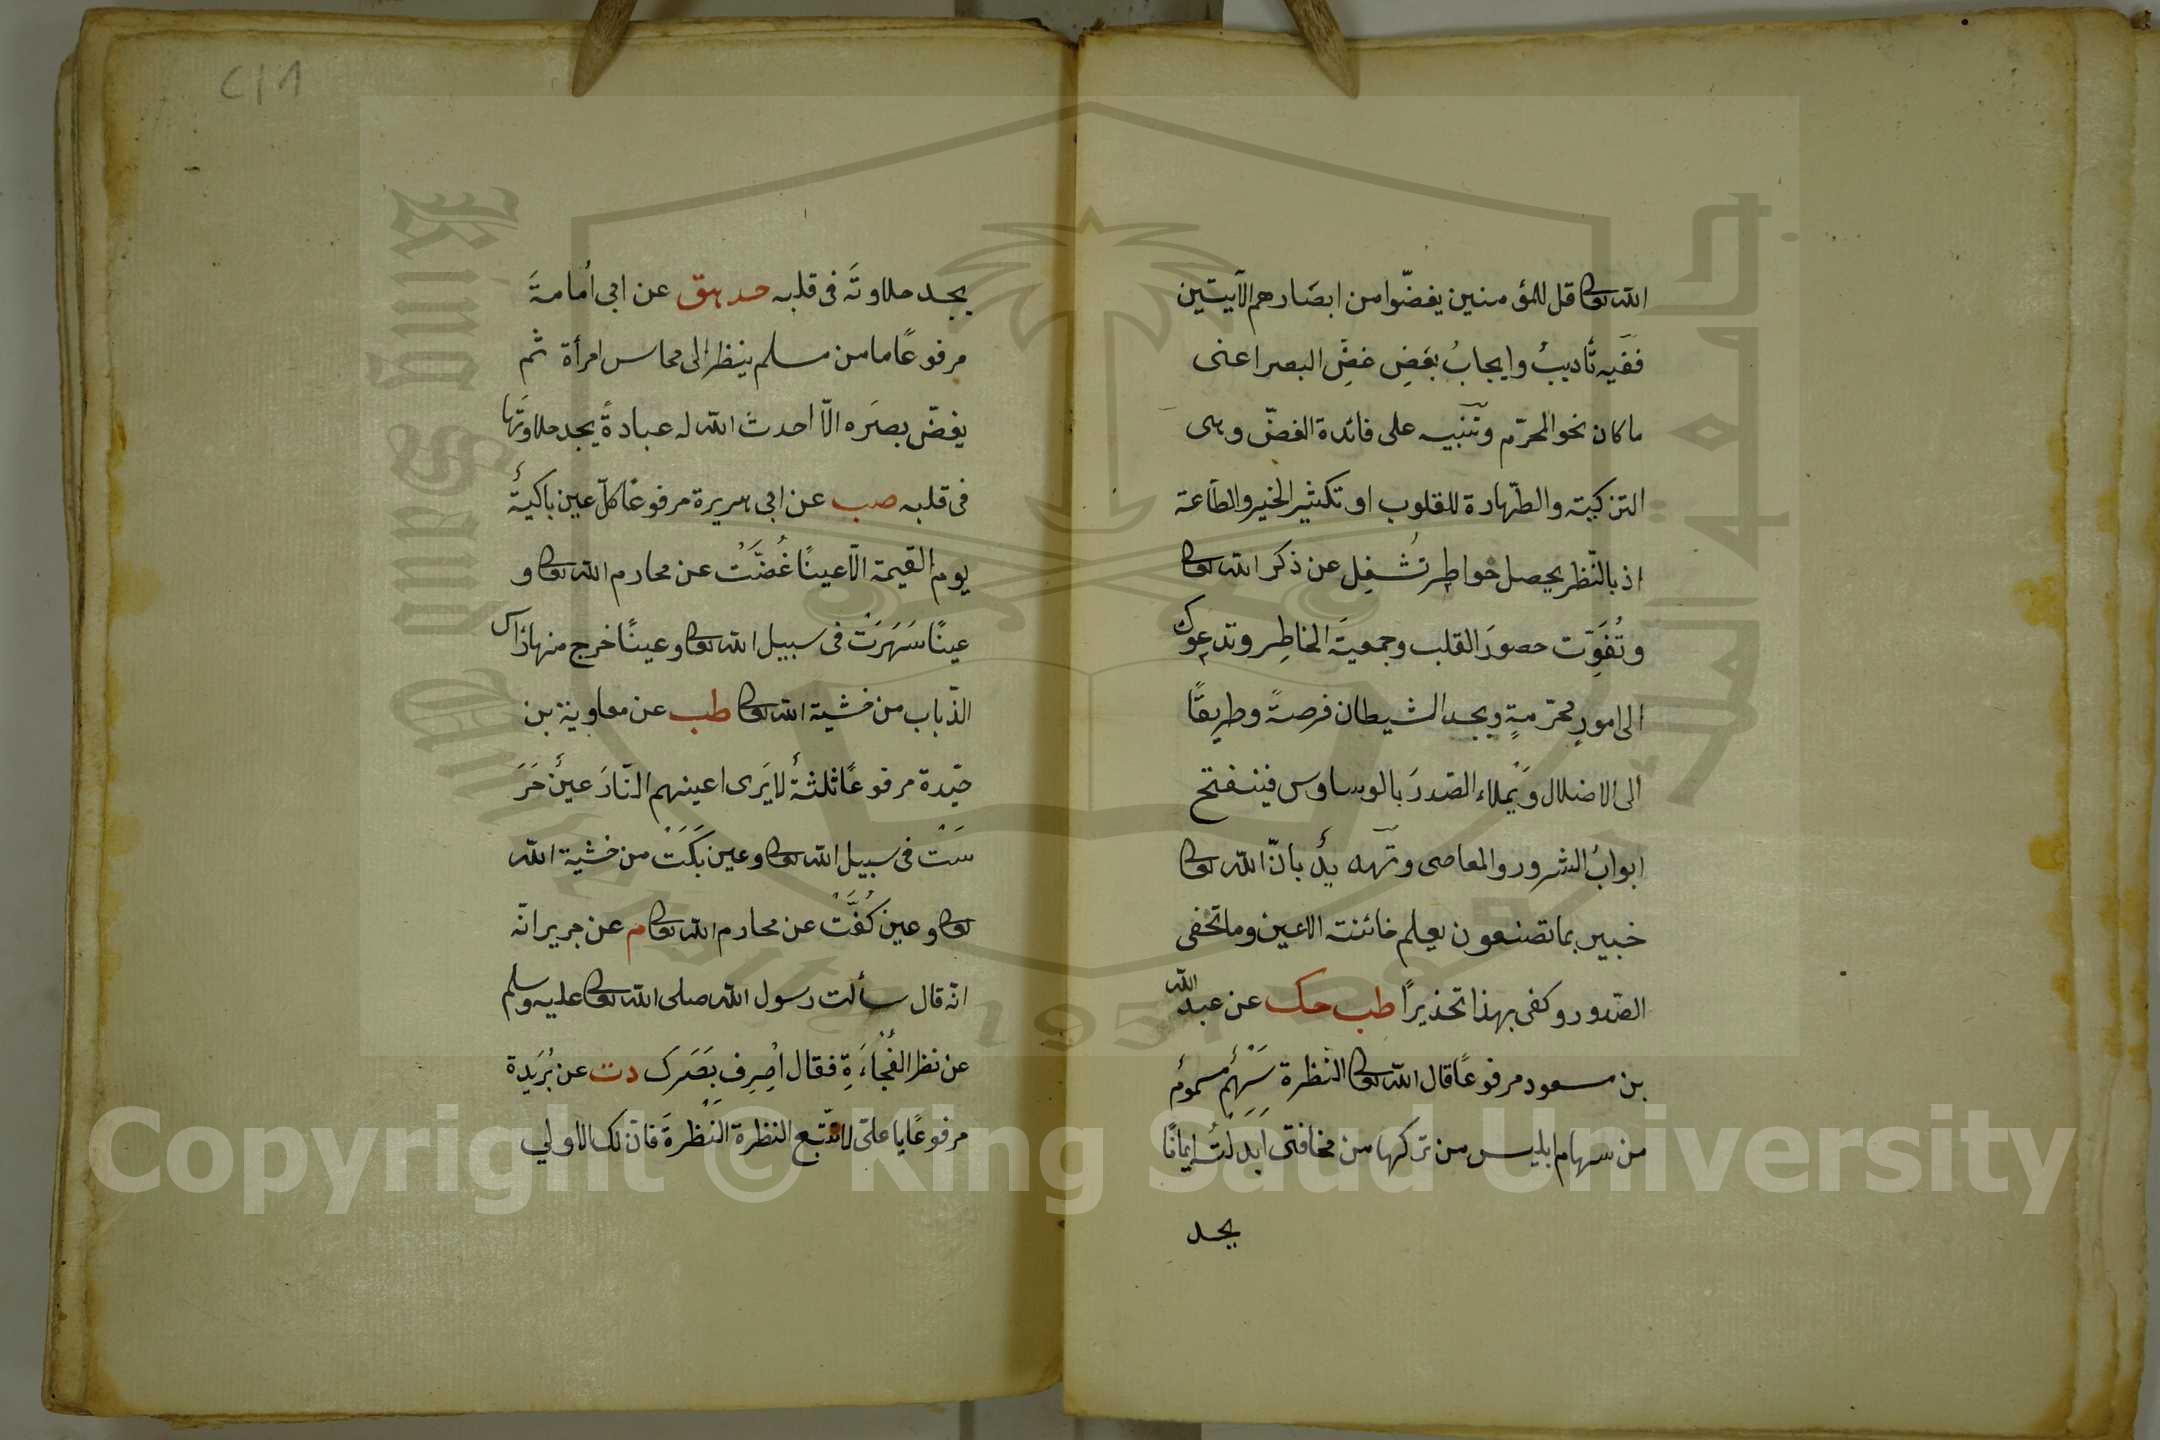 الله تعالى قل للمؤمنين يغضّوا من ابصَارهم الآيتين
ففيه تأديبٌ وايجابُ بعَضِ غضِّ البصر اعنى
ما كان نحو المحرّم وتنبيه على فائدة الغضّ وهى
التزكية والطّهارة للقلوب او تكثير الخير والطاعة
اذ بالنّظر يحصل خواطِر تُشغِل عن ذكر الله تعالى
وتُفَوِّت حضورَ القلب وجمعيةَ الخاطِر وتدعوك
الى امورٍ محرّمةٍ ويجد الشيطان فرصةً وطريقًا
الى الاضلال ويَملاء الصّدرَ بالوساوس فينفتح
ابوابُ الشرور والمعاصى وتهديدٌ بانّ الله تعالى
خبير بما تصنعون يعلم خائنة الاعين وما تخفى
الصّدور وكفى بهذا تحذيرًا طب حك عن عبد الله
بن مسعود مرفوعًا قال الله تعالى النّظرة سَهْمٌ مسمومٌ
من سهام ابليس من تركها من مخافتى اَبدَلتُه ايمانًا
يجد
٢١٨
يجد حلاوتَه فى قلبه حد هق عن ابى اُمامةَ
مرفوعًا ما من مسلم ينظر الى محاسن امرأة ثم
يغضّ بصَره الّا احدث الله له عبادةً يجد حلاوتَها
فى قلبه صب عن ابى هريرة مرفوعًا كلّ عين باكيةٌ
يوم القيمة الّا عينًا غُضَّتْ عن محارم الله تعالى و
عينًا سَهَرَتْ فى سبيل الله تعالى وعينًا خرج منها رأس
الذّباب من خشية الله تعالى طب عن معاوية بن
حيّدة مرفوعًا ثلثةٌ لا يَرى اعينهم النّارَ عينٌ حَرَ
سَتْ فى سبيل الله تعالى وعين بَكَتْ من خشية الله
تعالى وعين كُفَّتْ عن محارم الله تعالى م عن جرير انّه
انّه قال سألت رسول الله صلى الله تعالى عليه وسلم
عن نظر الفُجْاَءَةِ فقال اصْرِف بَصَرك دت عن بُرَيدة
مرفوعًا يا علىّ لا تتّبع النظرة النَظرةَ فانّ لك الاولي
Copyright © King Saud University
King Saud University
جامعة الملك سعود
1957